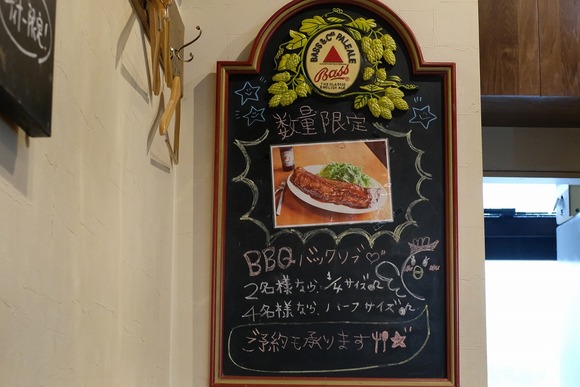 BASS & Co's PALE ALE
Bass
数量限定
BBQ バックリブ♡
2名様なら、1/4サイズ♫
4名様なら、ハーフサイズ♫
ご予約も承ります
限定!